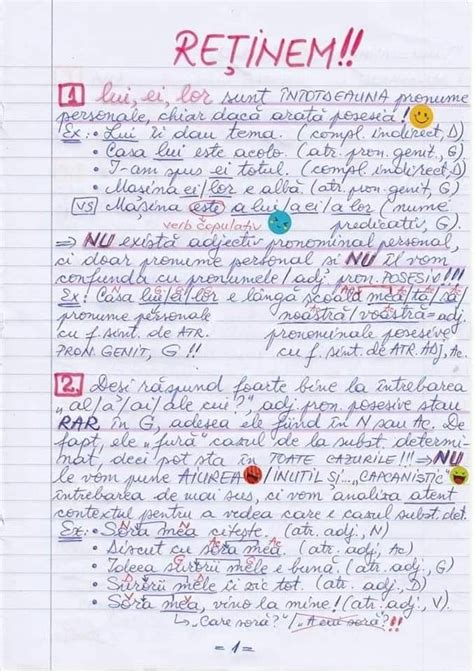 REȚINEM!!
1 lui, ei, lor sunt ÎNTOTDEAUNA pronume
personale, chiar dacă arată posesia!
Ex.: • Lui îi dau tema. (compl. indirect, D)
• Casa lui este acolo. (atr. pron. genit., G)
• I-am spus ei totul. (compl. indirect, D)
• Mașina ei/lor e albă (atr. pron. genit, G)
VS Mașina este a lui/a ei/a lor (nume
verb copulativ predicativ, G).
⇒ NU există adjectiv pronominal personal,
ci doar pronume personal și NU îl vom
confunda cu pronumele/adj. pron. POSESIV!!!
G G G Ac Ac Ac
Ex: Casa lui/ei/lor e lângă școala mea/ta/sa/
pronume personale noastră/voastră = adj.
cu f. sint. de ATR. pronominale posesive
PRON. GENIT, G!! cu f. sint. de ATR. ADJ, Ac.
2. Deși răspund foarte bine la întrebarea
„al/a/ai/ale cui?", adj. pron. posesive stau
RAR în G, adesea ele fiind în N sau Ac. De
fapt, ele „fură" cazul de la subst. determi-
nat, deci pot sta în TOATE CAZURILE!!! ⇒ NU
le vom pune AIUREA/INUTIL și... „CAPCANISTIC"
întrebarea de mai sus, ci vom analiza atent
contextul pentru a vedea care e cazul subst. det.
N N
Ex: • Sora mea citește. (atr. adj., N)
Ac Ac
• Discut cu sora mea. (atr. adj., Ac)
G G
• Ideea surorii mele e bună. (atr. adj., G)
D D
• Surorii mele îi zic tot. (atr. adj., D)
V V
• Sora mea, vino la mine! (atr. adj., V).
↳ „Care soră?"/„A cui soră?"!!
= 1 =